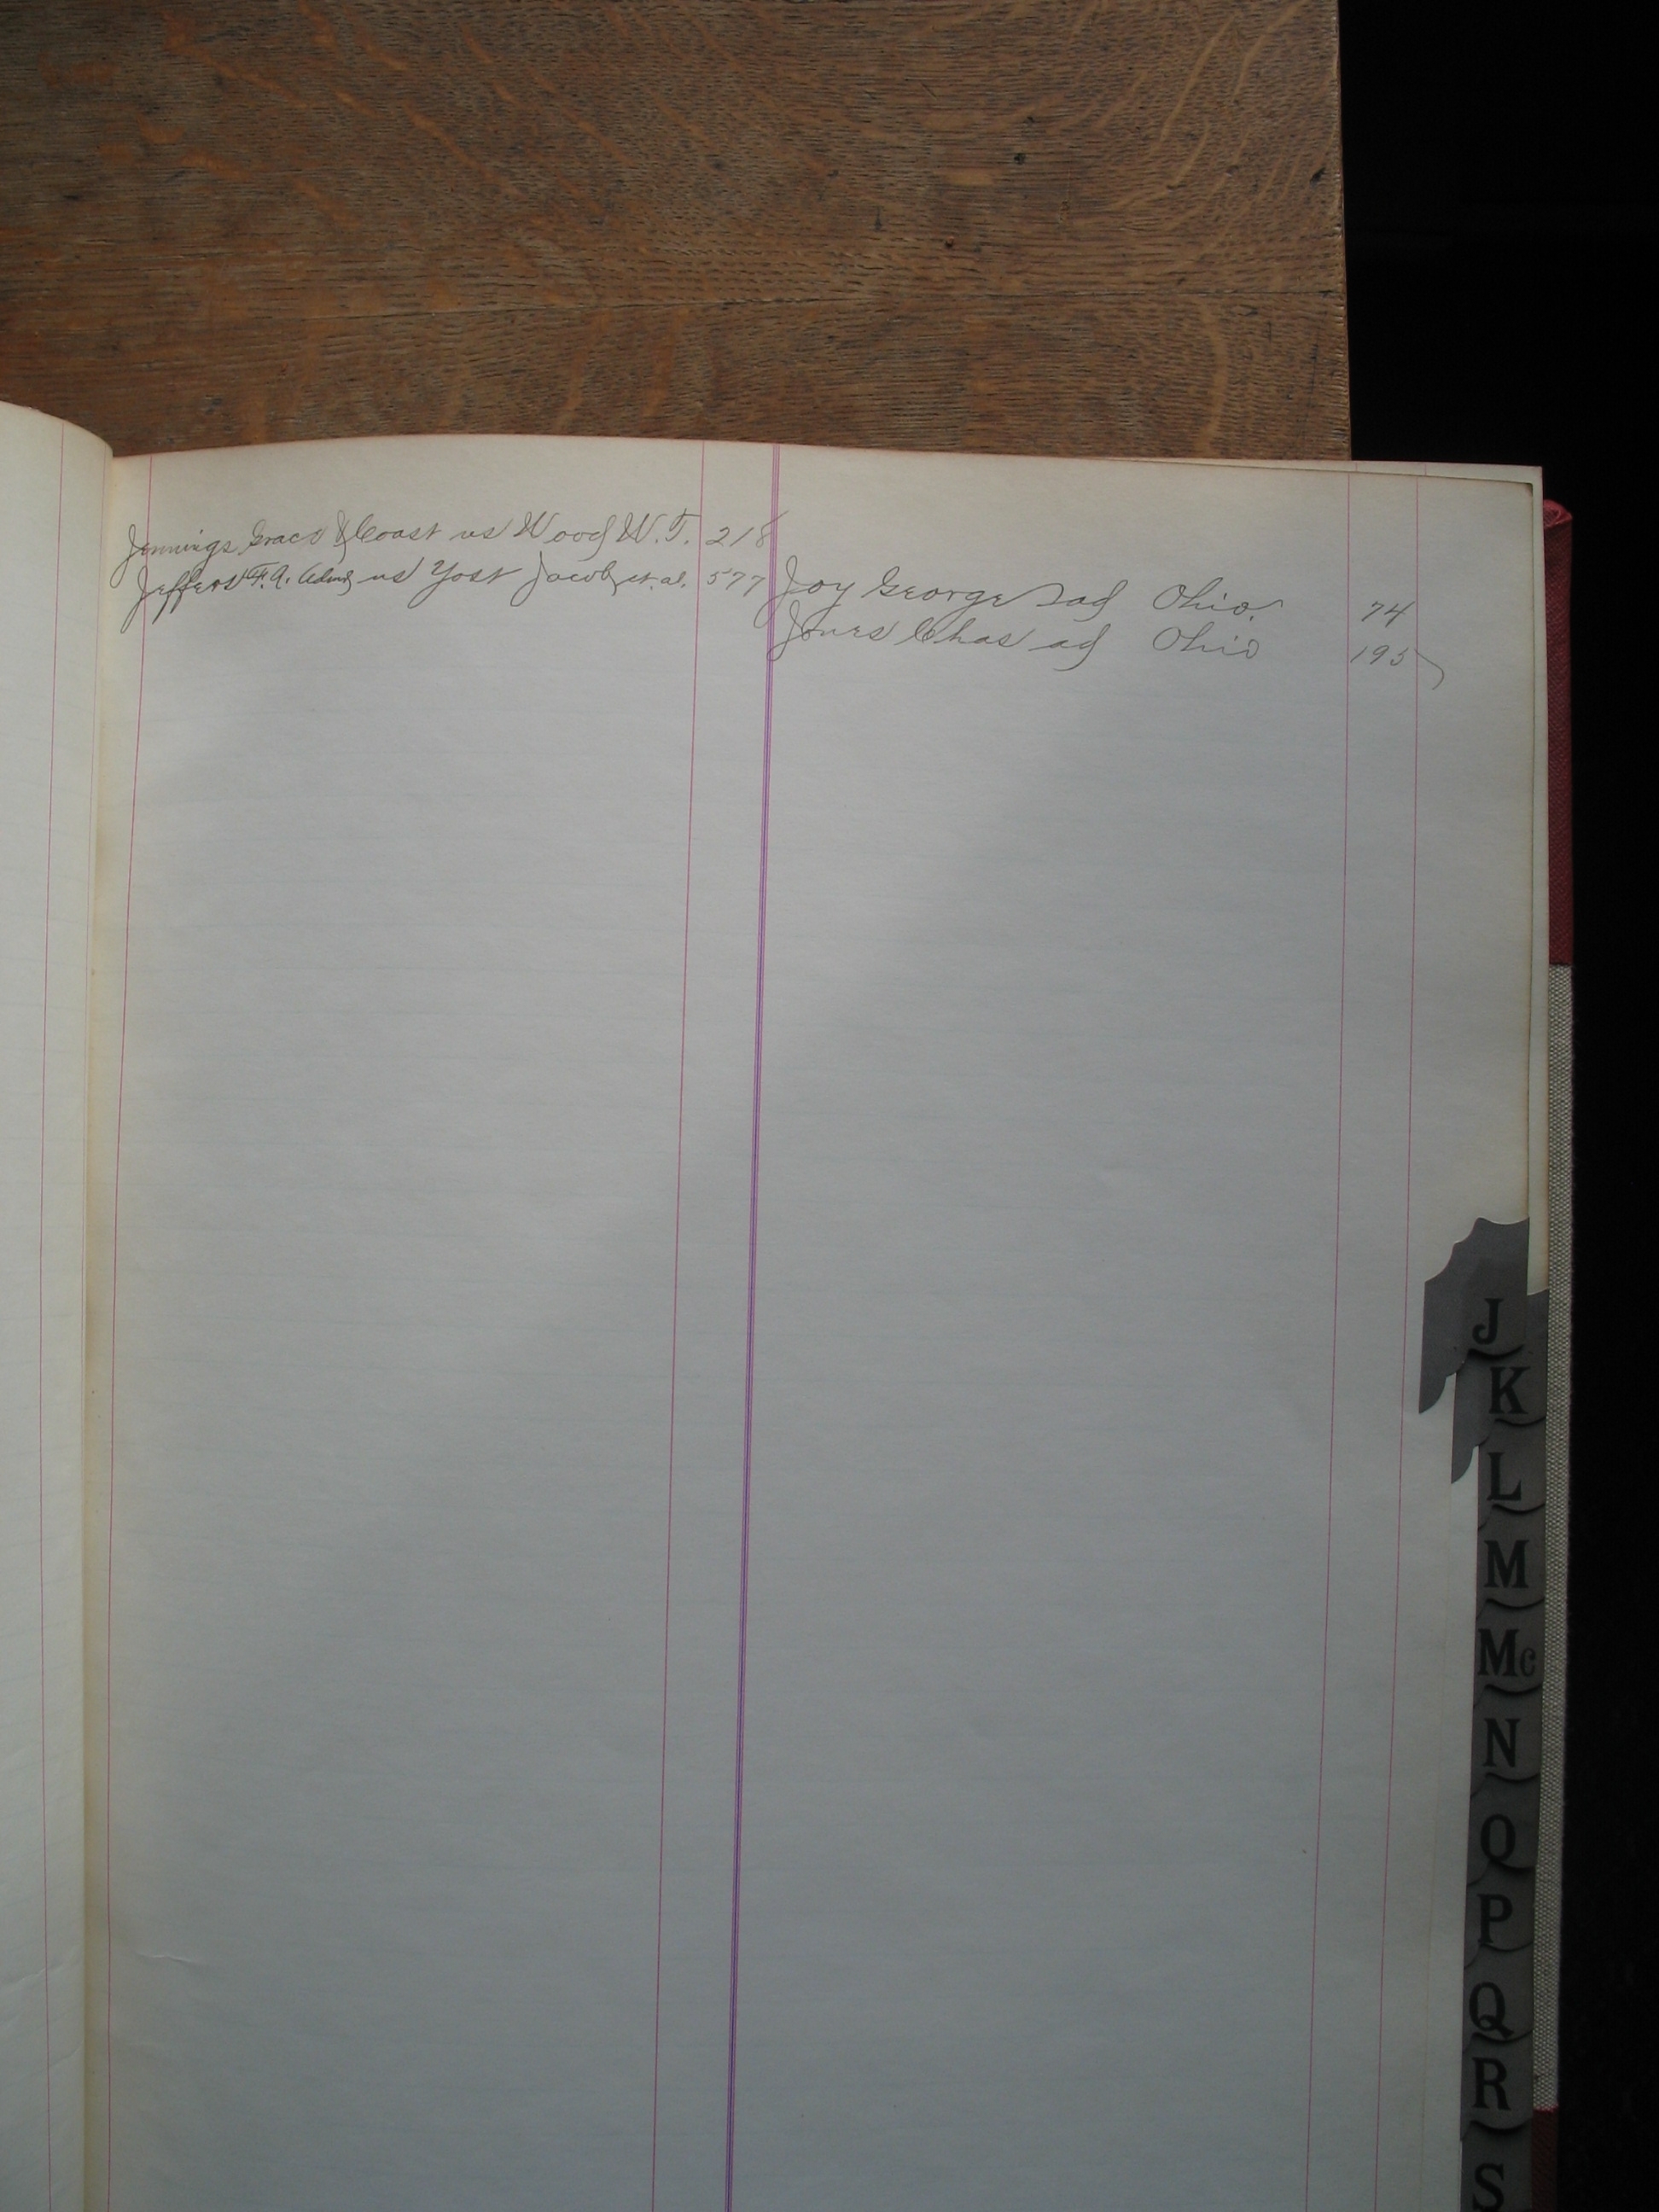 Jennings Grace & Coast vs Wood W. T. 218
Jeffers F. A. Admr vs Yost Jacob et. al. 577
Joy George ad Ohio. 74
Jones Chas ad Ohio 195
J
K
L
M
Mc
N
O
P
Q
R
S